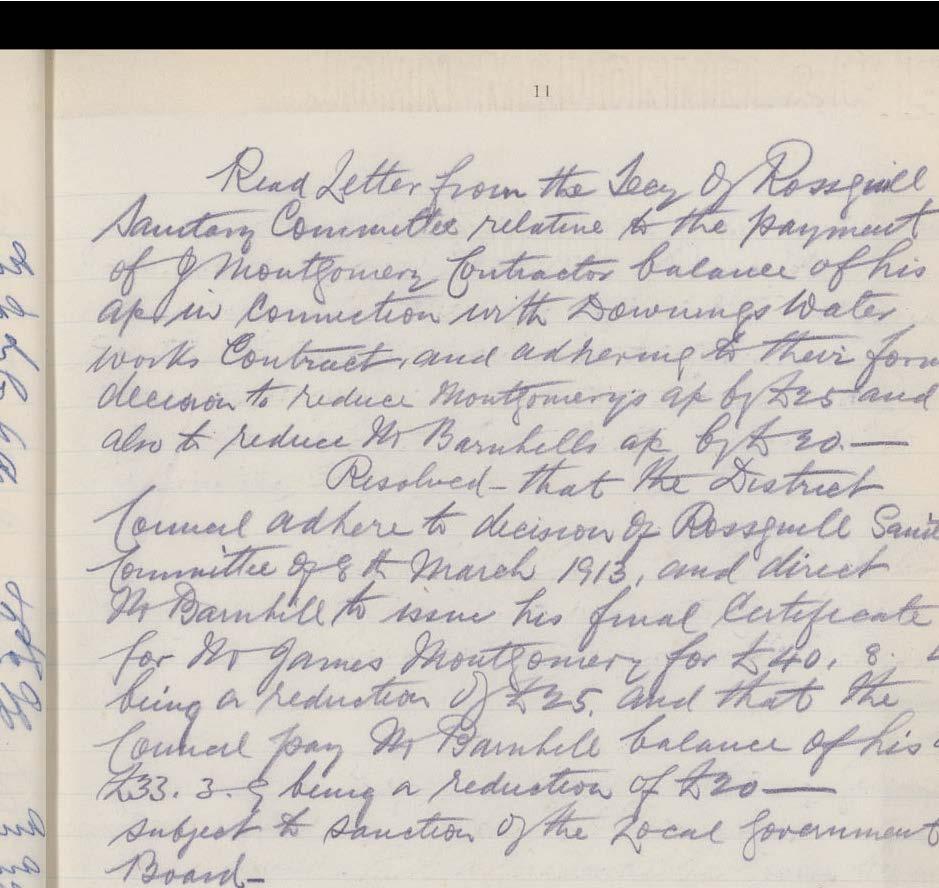 11
Read Letter from the Secy of Rossguill
Sanitary Committee relative to the payment
of J Montgomery Contractor balance of his
a/c in Connection with Downings Water
works Contract, and adhering to their form
decision to reduce Montgomery's a/c by £25 and
also to reduce Mr Barnhills a/c by £20 —
Resolved – that the District
Council adhere to decision of Rossguill Sanit
Committee of 8th March 1913, and direct
Mr Barnhill to issue his final Certificate
for Mr James Montgomery for £40. 8.
being a reduction of £25. and that the
Council pay Mr Barnhill balance of his
£33. 3. 8 being a reduction of £20 —
subject to sanction of the Local Government
Board –